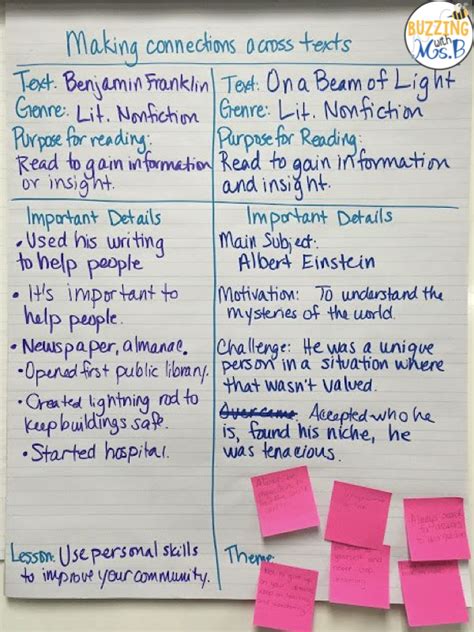 BUZZING
with
Mrs.B
Making connections across texts
Text: Benjamin Franklin
Genre: Lit. Nonfiction
Purpose for reading:
Read to gain information
or insight.
Text: On a Beam of Light
Genre: Lit. Nonfiction
Purpose for Reading:
Read to gain information
and insight.
Important Details
• Used his writing
to help people
• It's important to
help people.
• Newspaper, almanac.
• Opened first public library.
• Created lightning rod to
keep buildings safe.
• Started hospital.
Lesson: Use personal skills
to improve your community.
Important Details
Main Subject:
Albert Einstein
Motivation: To understand the
mysteries of the world.
Challenge: He was a unique
person in a situation where
that wasn't valued.
Overcame: Accepted who he
is, found his niche, he
was tenacious.
Theme: